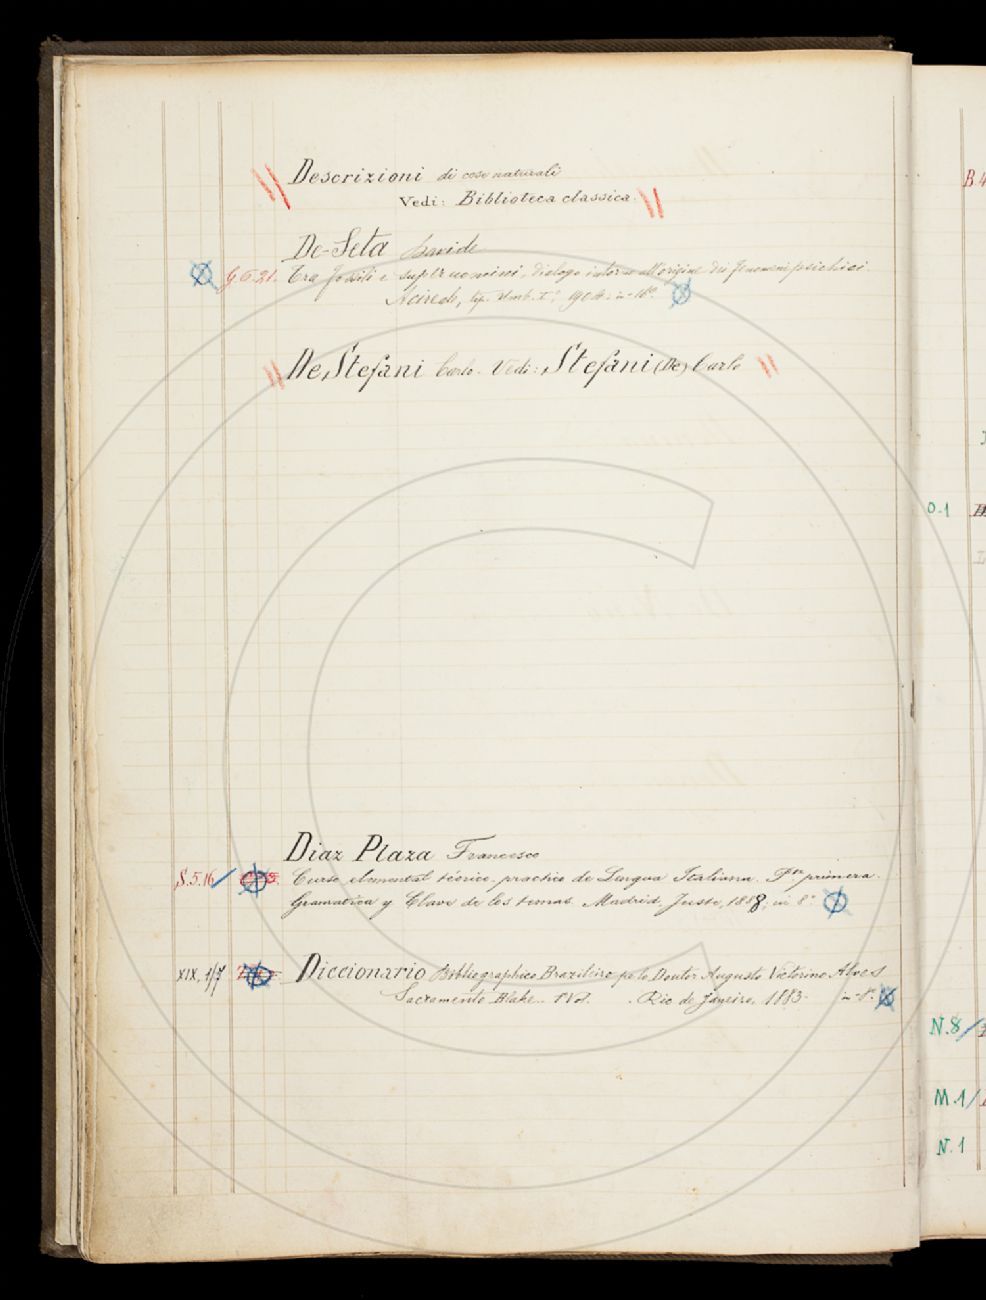 Descrizioni di cose naturali
Vedi: Biblioteca classica.
De-Seta Davide
G.6.21. Tra fossili e superuomini, dialogo intorno all'origine dei fenomeni psichici.
Acireale, tip. Umb. I.° 1904. in-16°.
De Stefani Carlo. Vedi: Stefani (De) Carlo
Diaz Plaza Francesco
S.5.16 Curso elemental téorico-practico de Lengua Italiana. Pte primera.
Gramatica y Clave de los temas. Madrid, Juste, 1888, in 8°
XIX, 1/7 Diccionario Bibliographico Brazileiro pelo Doutor Augusto Victorino Alves
Sacramento Blake. 1° Vol. Rio de Janeiro, 1883. in-8°.
B.4
O.1
N.8/
M.1/
N.1